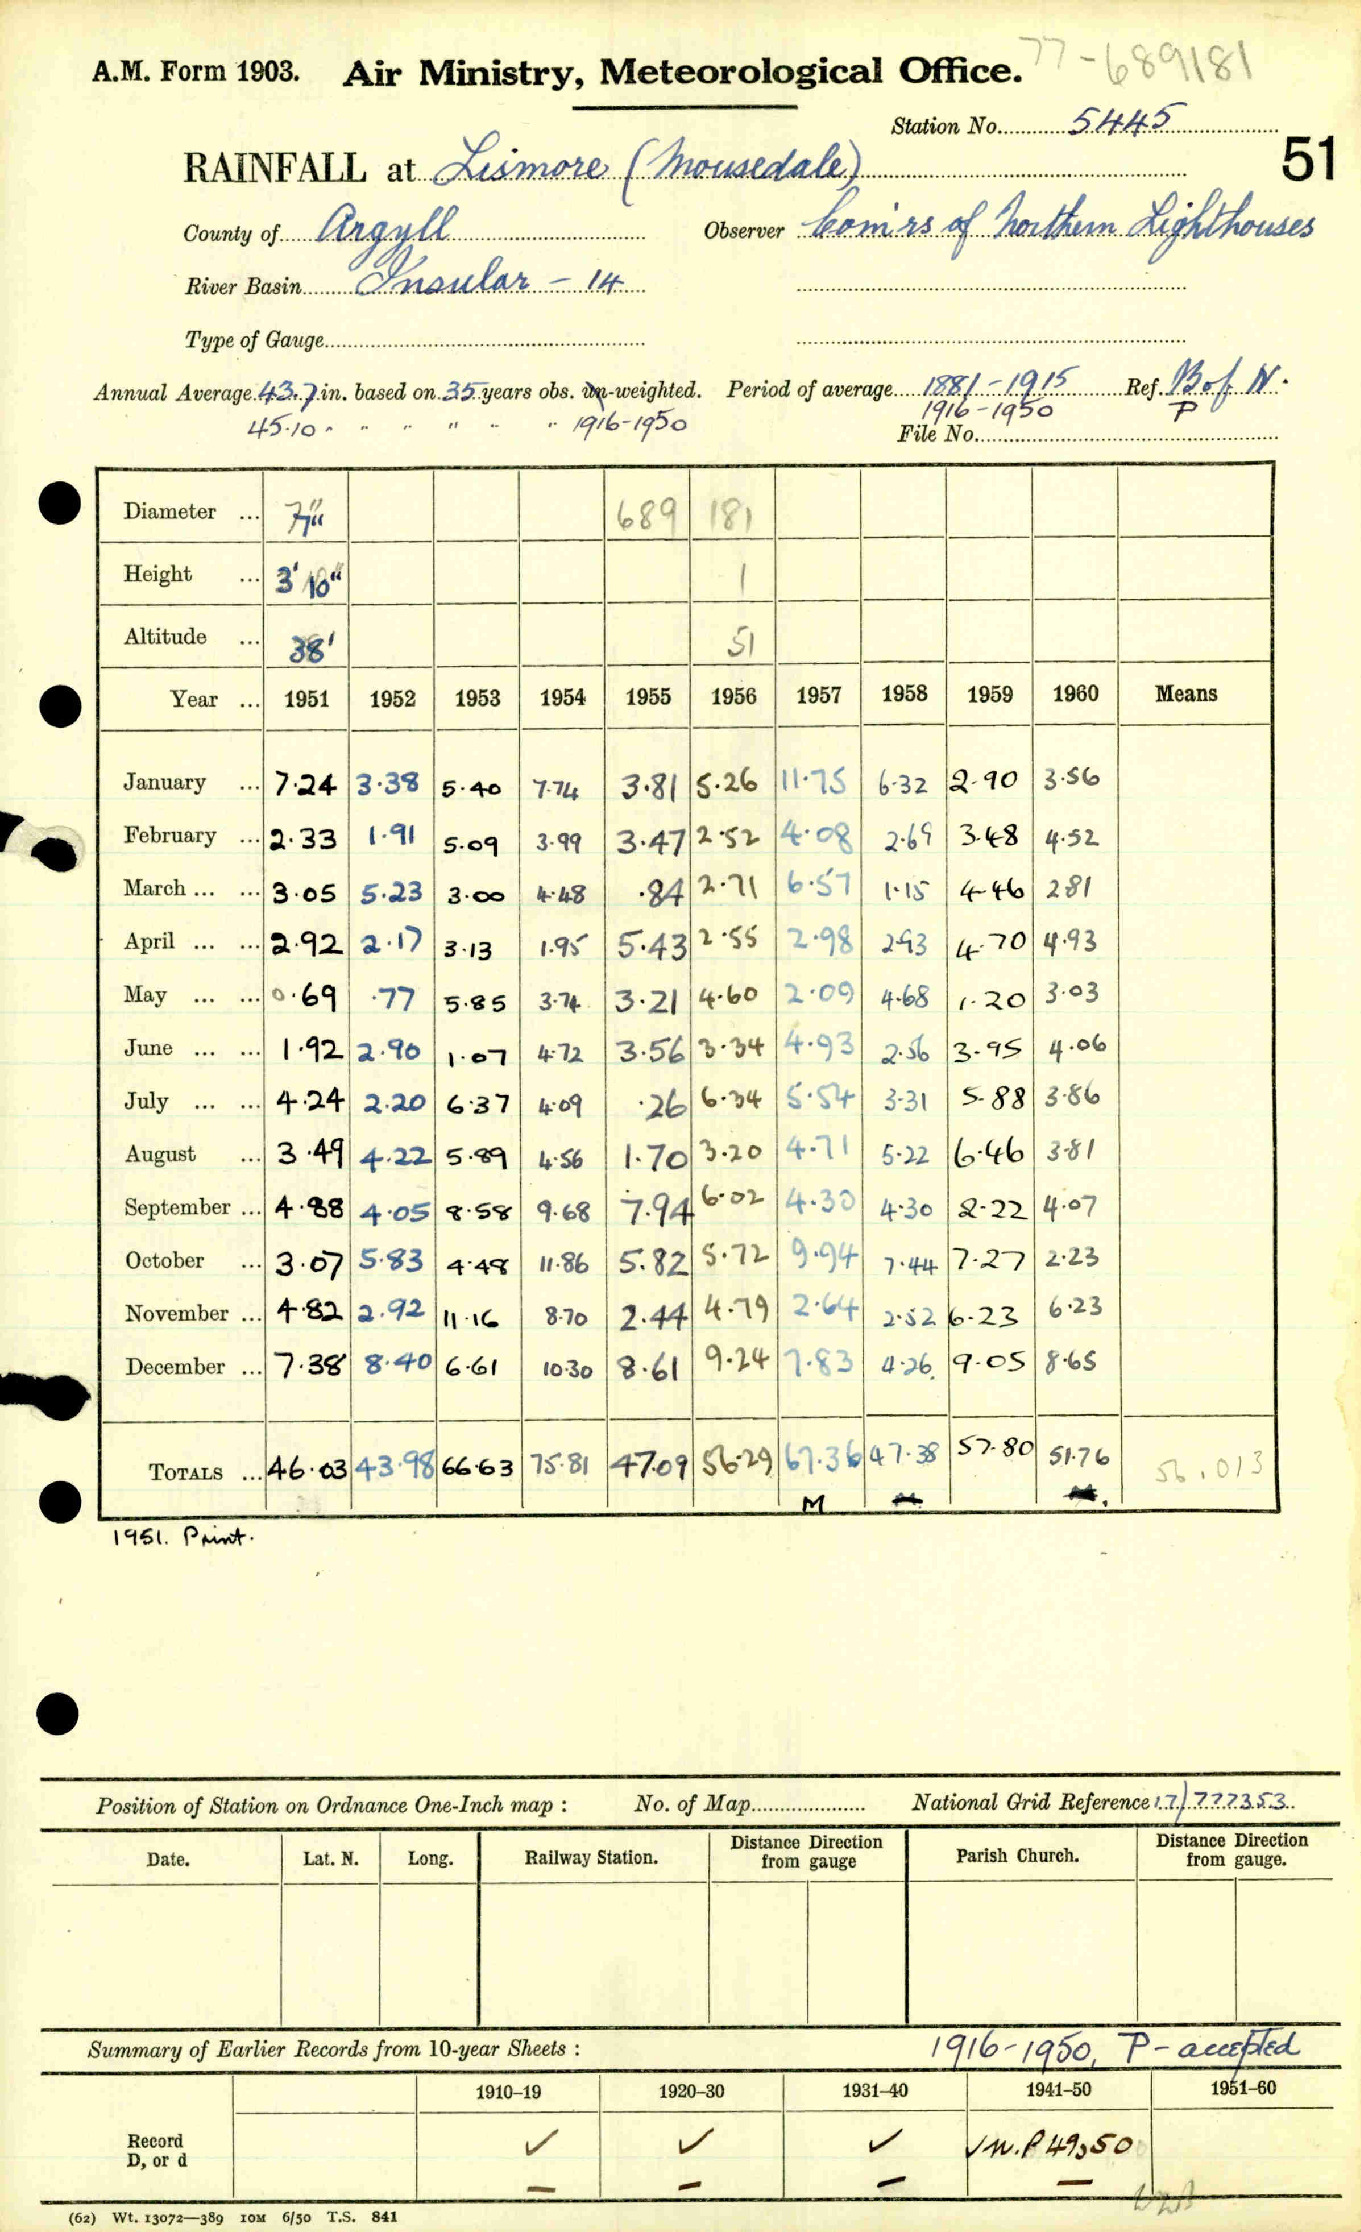 77-689181
A.M. Form 1903. Air Ministry, Meteorological Office.
Station No. 5445
51
RAINFALL at Lismore (Mousedale)
County of Argyll Observer Com'rs of Northern Lighthouses
River Basin Insular - 14
Type of Gauge
Annual Average 43.7 in. based on 35 years obs. un-weighted. Period of average 1881-1915 Ref. B of N.
45.10 " " " " " " 1916-1950 1916-1950 P
File No.
Diameter ... 7" 689 181
Height ... 3' 10" 1
Altitude ... 38' 51
Year ... 1951 1952 1953 1954 1955 1956 1957 1958 1959 1960 Means
January ... 7.24 3.38 5.40 7.74 3.81 5.26 11.75 6.32 2.90 3.56
February ... 2.33 1.91 5.09 3.99 3.47 2.52 4.08 2.69 3.48 4.52
March ... ... 3.05 5.23 3.00 4.48 .84 2.71 6.57 1.15 4.46 2.81
April ... ... 2.92 2.17 3.13 1.95 5.43 2.55 2.98 2.93 4.70 4.93
May ... ... 0.69 .77 5.85 3.74 3.21 4.60 2.09 4.68 1.20 3.03
June ... ... 1.92 2.90 1.07 4.72 3.56 3.34 4.93 2.56 3.95 4.06
July ... ... 4.24 2.20 6.37 4.09 .26 6.34 5.54 3.31 5.88 3.86
August ... 3.49 4.22 5.89 4.56 1.70 3.20 4.71 5.22 6.46 3.81
September ... 4.88 4.05 8.58 9.68 7.94 6.02 4.30 4.30 2.22 4.07
October ... 3.07 5.83 4.48 11.86 5.82 5.72 9.94 7.44 7.27 2.23
November ... 4.82 2.92 11.16 8.70 2.44 4.79 2.64 2.52 6.23 6.23
December ... 7.38 8.40 6.61 10.30 8.61 9.24 7.83 4.26 9.05 8.65
TOTALS ... 46.03 43.98 66.63 75.81 47.09 56.29 67.36 47.38 57.80 51.76 56.013
M
1951. Print.
Position of Station on Ordnance One-Inch map : No. of Map National Grid Reference 17/777353
Date. Lat. N. Long. Railway Station. Distance Direction from gauge Parish Church. Distance Direction from gauge.
Summary of Earlier Records from 10-year Sheets : 1916-1950, P - accepted
1910–19 1920–30 1931–40 1941–50 1951–60
Record ✓ ✓ ✓ ✓ M. P 49,50
D, or d – – – –
(62) Wt. 13072—389 10M 6/50 T.S. 841